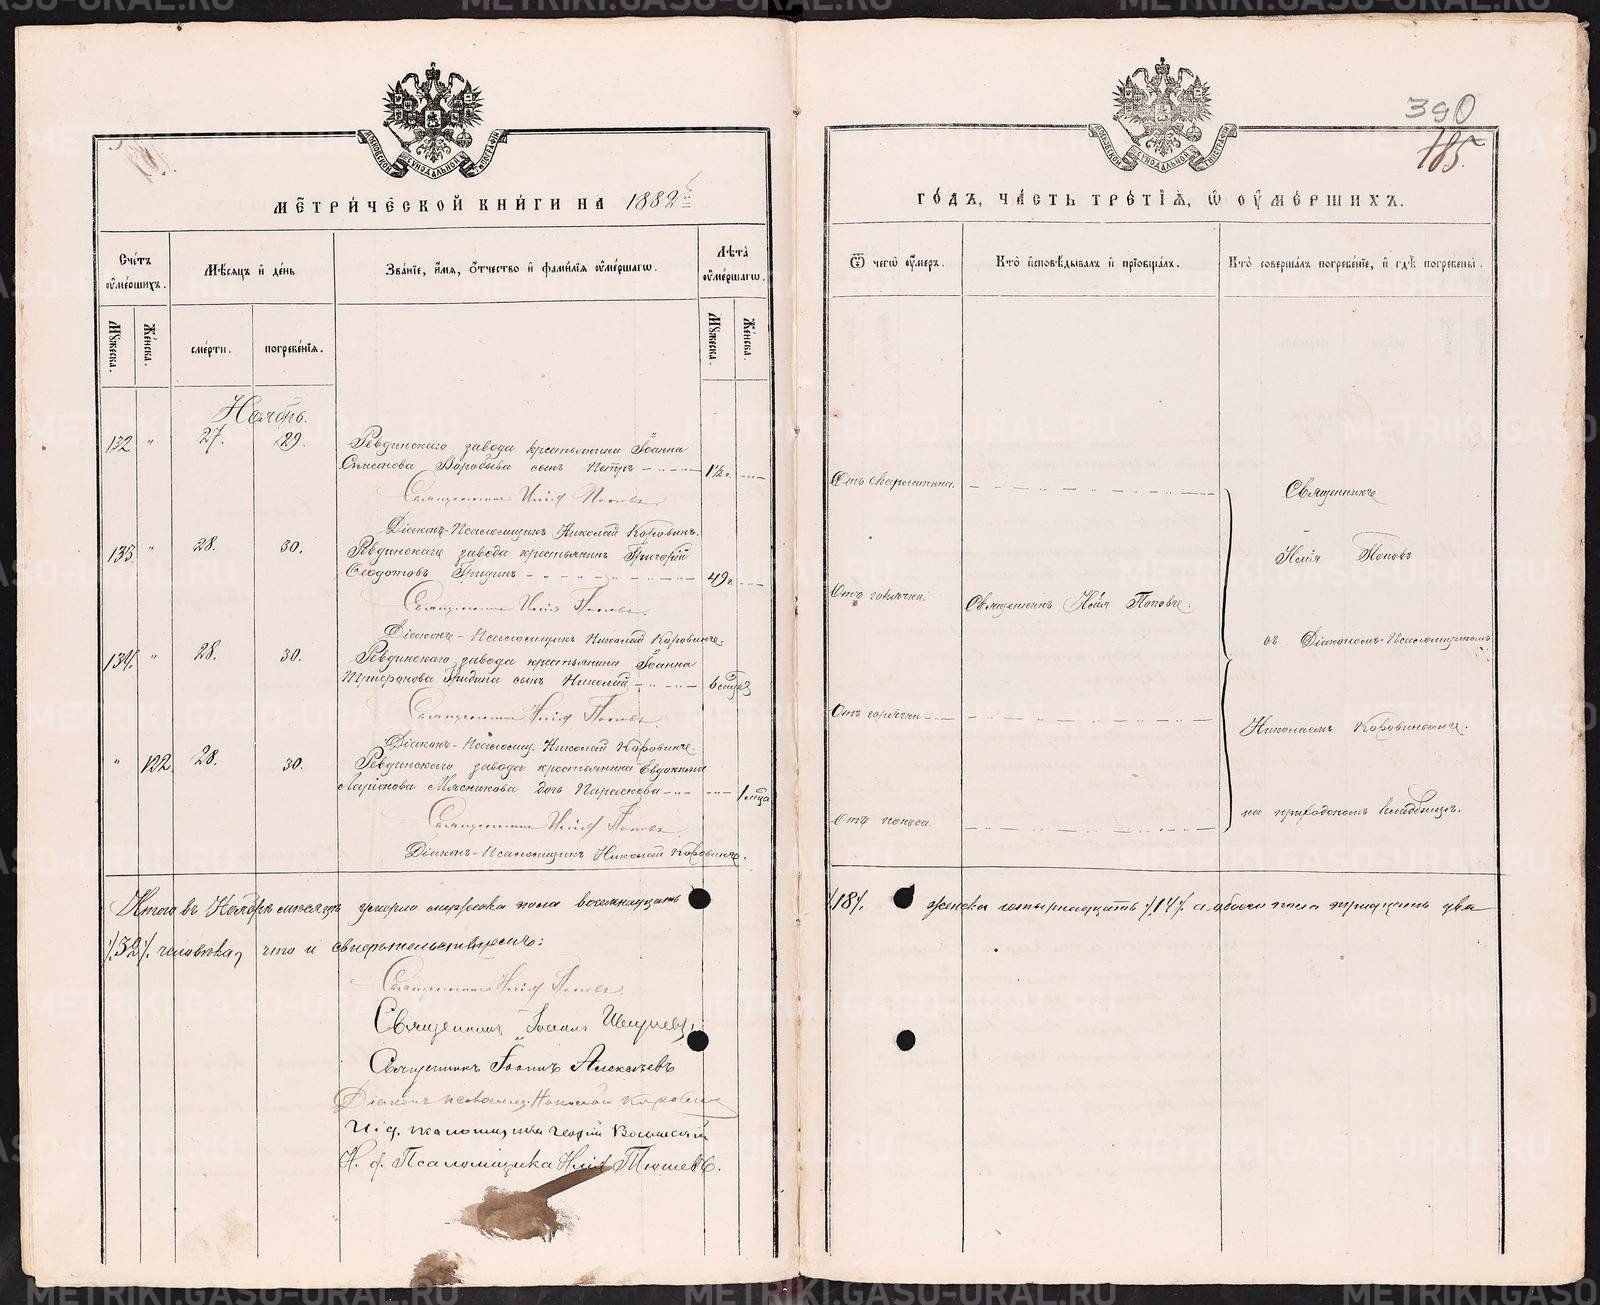 МЕТРИЧЕСКОЙ КНИГИ НА 1882 г.
Счетъ оумершихъ.
Мѣсяцъ и день
Званіе, имя, отчество и фамилія оумершагѡ.
Лѣта оумершагѡ.
Мужеска.
Женска.
смерти.
погребенія.
Мужеска.
Женска.
Ноябрь.
132 " 27. 29. Ревдинскаго завода крестьянина Іоанна
Симеонова Воробьева сынъ Петръ 1½ г.
Священникъ Илія Поповъ
Діаконъ-Псаломщикъ Николай Коровинъ.
133 " 28. 30. Ревдинскаго завода крестьянинъ Григорій
Ѳеодотовъ Гридинъ 49 г.
Священникъ Илія Поповъ.
Діаконъ-Псаломщикъ Николай Коровинъ.
134. " 28. 30. Ревдинскаго завода крестьянина Іоанна
Трифонова Гридина сынъ Николай 6
Священникъ Илія Поповъ.
Діаконъ-Псаломщ. Николай Коровинъ.
" 122. 28. 30. Ревдинскаго завода крестьянина Евдокима
Ларіонова Мясникова дочь Параскева 1 м-ца
Священникъ Илія Поповъ
Діаконъ-Псаломщикъ Николай Коровинъ.
Итого въ Ноябрѣ мѣсяцѣ умерло мужеска пола восемнадцать
./.32/. человѣка, что и свидѣтельствуемъ:
Священникъ Илія Поповъ.
Священникъ Іоаннъ
Священникъ Іоаннъ Алексѣевъ
Діаконъ псаломщ. Николай Коровинъ
И. д. псаломщика Георгій
И. д. Псаломщика Илія Тюшевъ.
390
185.
ГОДЪ, ЧАСТЬ ТРЕТІЯ, Ѡ ОУМЕРШИХЪ.
Ѿ чегѡ оумеръ.
Кто исповѣдывалъ и пріобщалъ.
Кто совершалъ погребеніе, и гдѣ погребены.
Отъ скарлатины.
Отъ горячки. Священникъ Илія Поповъ.
Отъ горячки
Отъ поноса.
Священникъ
Илія Поповъ
съ Діакономъ-Псаломщикомъ
Николаемъ Коровинымъ.
на приходскомъ кладбищѣ.
./.18/. женска четырнадцать ./.14/. а обоего пола тридцать два
METRIKI.GASO-URAL.RU